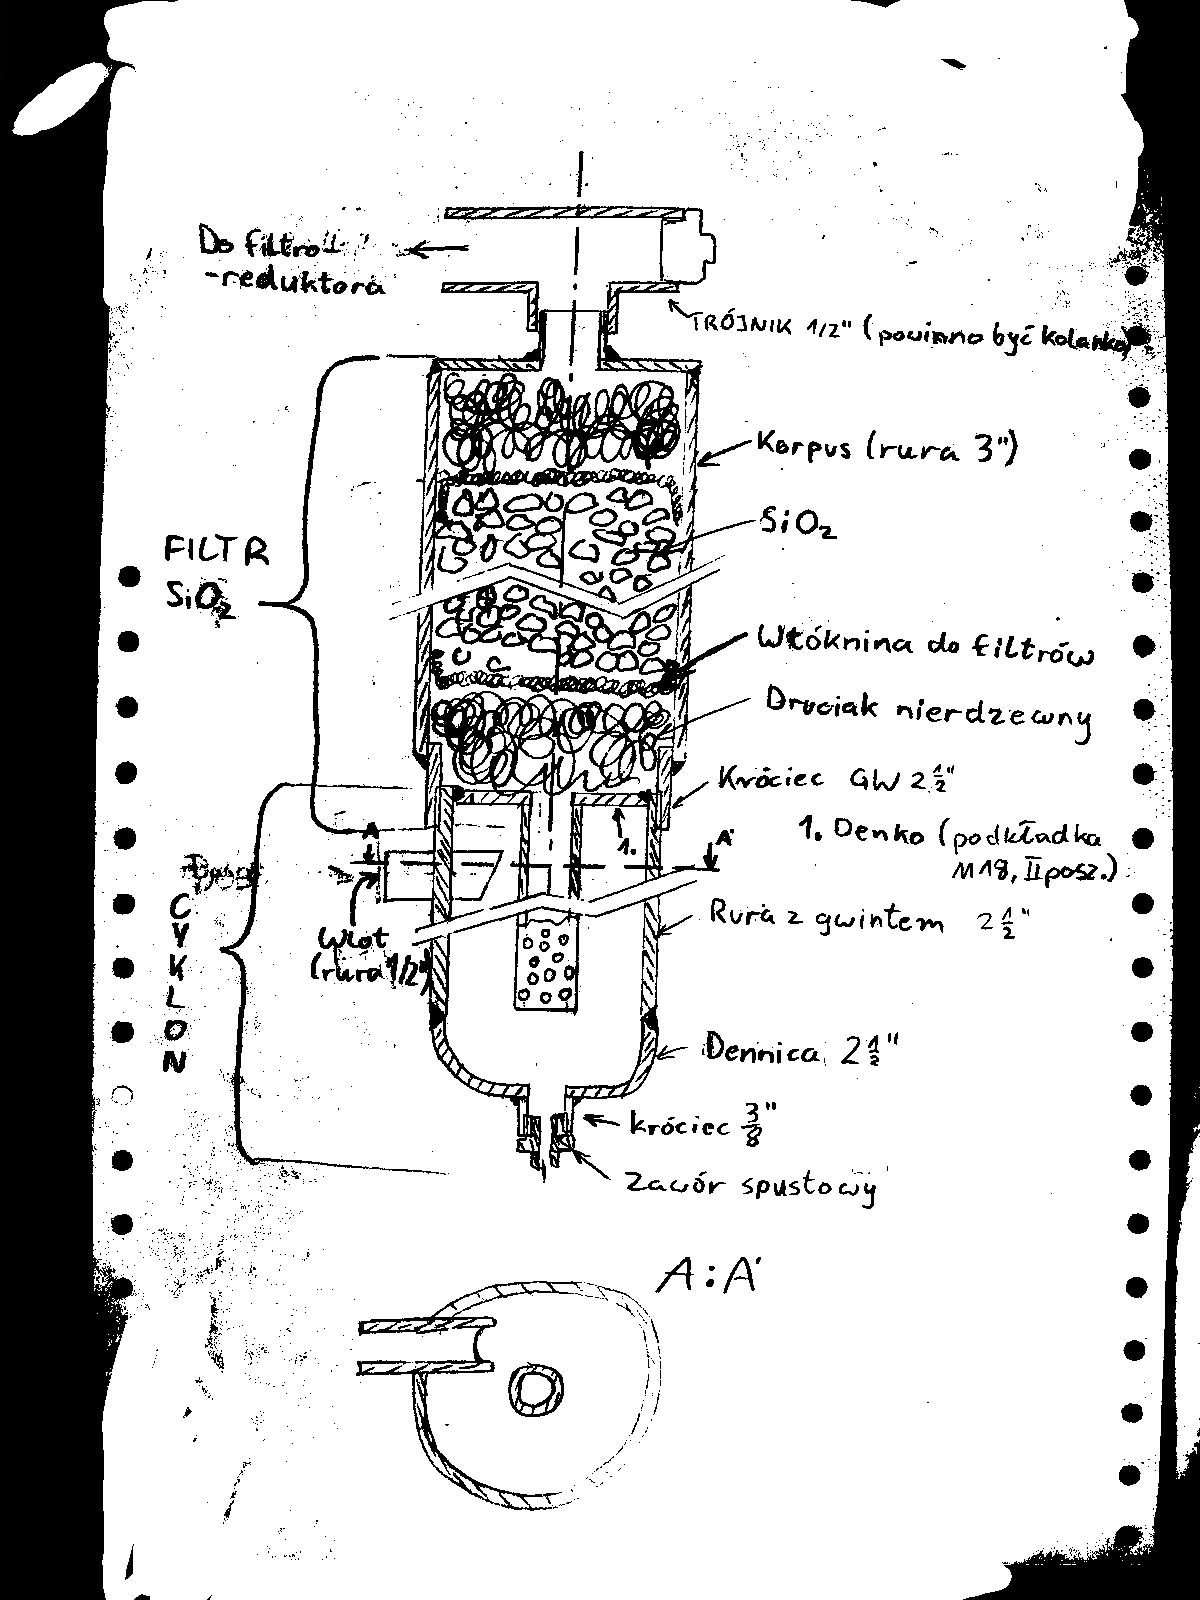 Do filtro
-reduktora
TRÓJNIK 1/2" (powinno być kolanko)
Korpus (rura 3")
SiO2
FILTR
SiO2
Włóknina do filtrów
Druciak nierdzewny
Króciec GW 2 1/2"
1. Denko (podkładka
M18, II posz.)
A
A'
1.
Rura z gwintem 2 1/2"
Wlot
(rura 1/2")
C
Y
K
L
O
N
Dennica 2 1/2"
króciec 3/8"
Zawór spustowy
A:A'